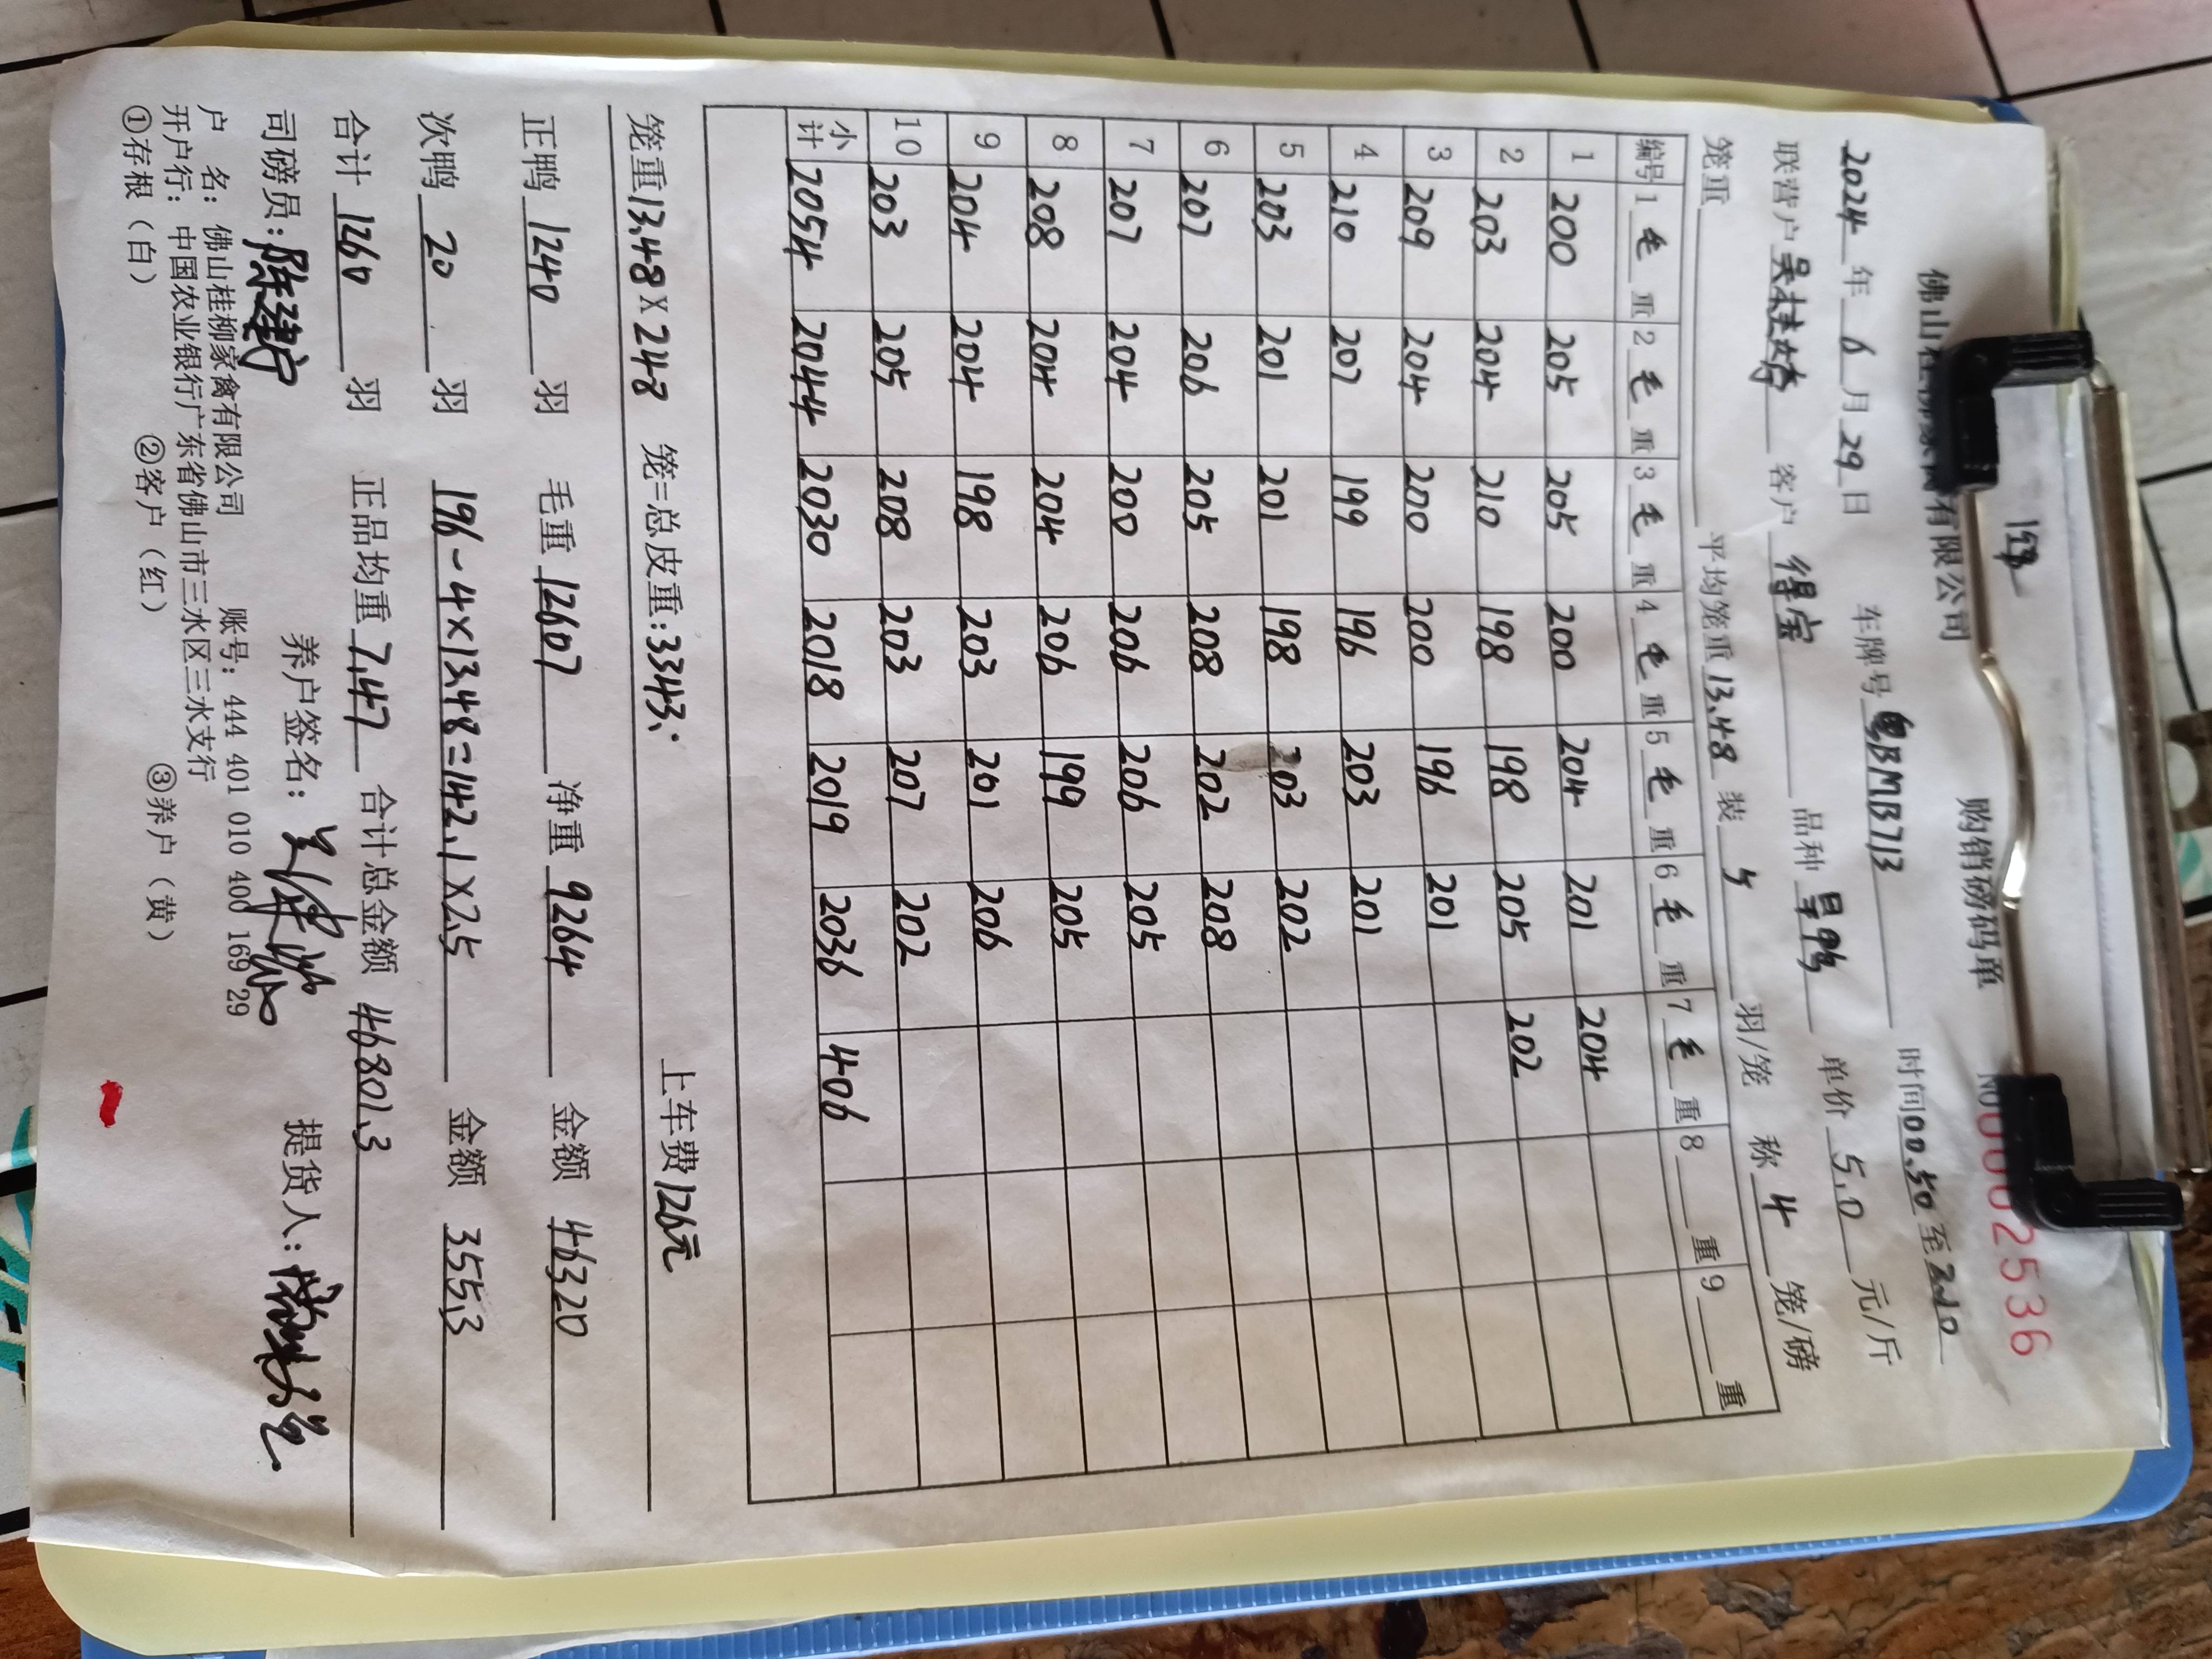 198
有限公司 购销磅码单 №0002536
2024年6月29日 车牌号粤BMB713 时间00.50至2.10
联营户 客户得宝 品种旱鸭 单价5.0元/斤
笼重 平均笼重13.48装5羽/笼 称4笼/磅
编号 1毛重 2毛重 3毛重 4毛重 5毛重 6毛重 7毛重 8 重 9 重
1 200 205 205 200 204 201 204
2 203 204 210 198 198 205 202
3 209 204 200 200 196 201
4 210 207 199 196 203 201
5 203 201 201 198 203 202
6 207 206 205 208 202 208
7 207 204 200 206 206 205
8 208 204 204 206 199 205
9 204 204 198 203 201 206
10 203 205 208 203 207 202
小计 2054 2044 2030 2018 2019 2036 406
笼重13.48X248 笼=总皮重:3343 上车费126元
正鸭1240羽 毛重12607 净重9264 金额46320
次鸭20羽 196-4×13.48=142.1X2.5 金额355.3
合计1260羽 正品均重7.47 合计总金额46801.3
司磅员: 养户签名: 提货人:
户 名:佛山桂柳家禽有限公司 账号:444 401 010 400 169 29
开户行:中国农业银行广东省佛山市三水区三水支行
①存根(白) ②客户(红) ③养户(黄)